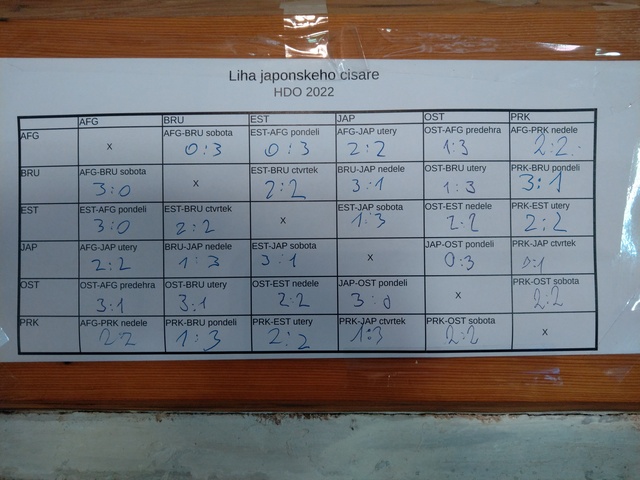 Liha japonskeho cisare
HDO 2022
AFG BRU EST JAP OST PRK
AFG x AFG-BRU sobota EST-AFG pondeli AFG-JAP utery OST-AFG predehra AFG-PRK nedele
0:3 0:3 2:2 1:3 2:2
BRU AFG-BRU sobota x EST-BRU ctvrtek BRU-JAP nedele OST-BRU utery PRK-BRU pondeli
3:0 2:2 3:1 1:3 3:1
EST EST-AFG pondeli EST-BRU ctvrtek x EST-JAP sobota OST-EST nedele PRK-EST utery
3:0 2:2 1:3 2:2 2:2
JAP AFG-JAP utery BRU-JAP nedele EST-JAP sobota x JAP-OST pondeli PRK-JAP ctvrtek
2:2 1:3 3:1 0:3
OST OST-AFG predehra OST-BRU utery OST-EST nedele JAP-OST pondeli x PRK-OST sobota
3:1 3:1 2:2 3:0 2:2
PRK AFG-PRK nedele PRK-BRU pondeli PRK-EST utery PRK-JAP ctvrtek PRK-OST sobota x
2:2 1:3 2:2 1:3 2:2